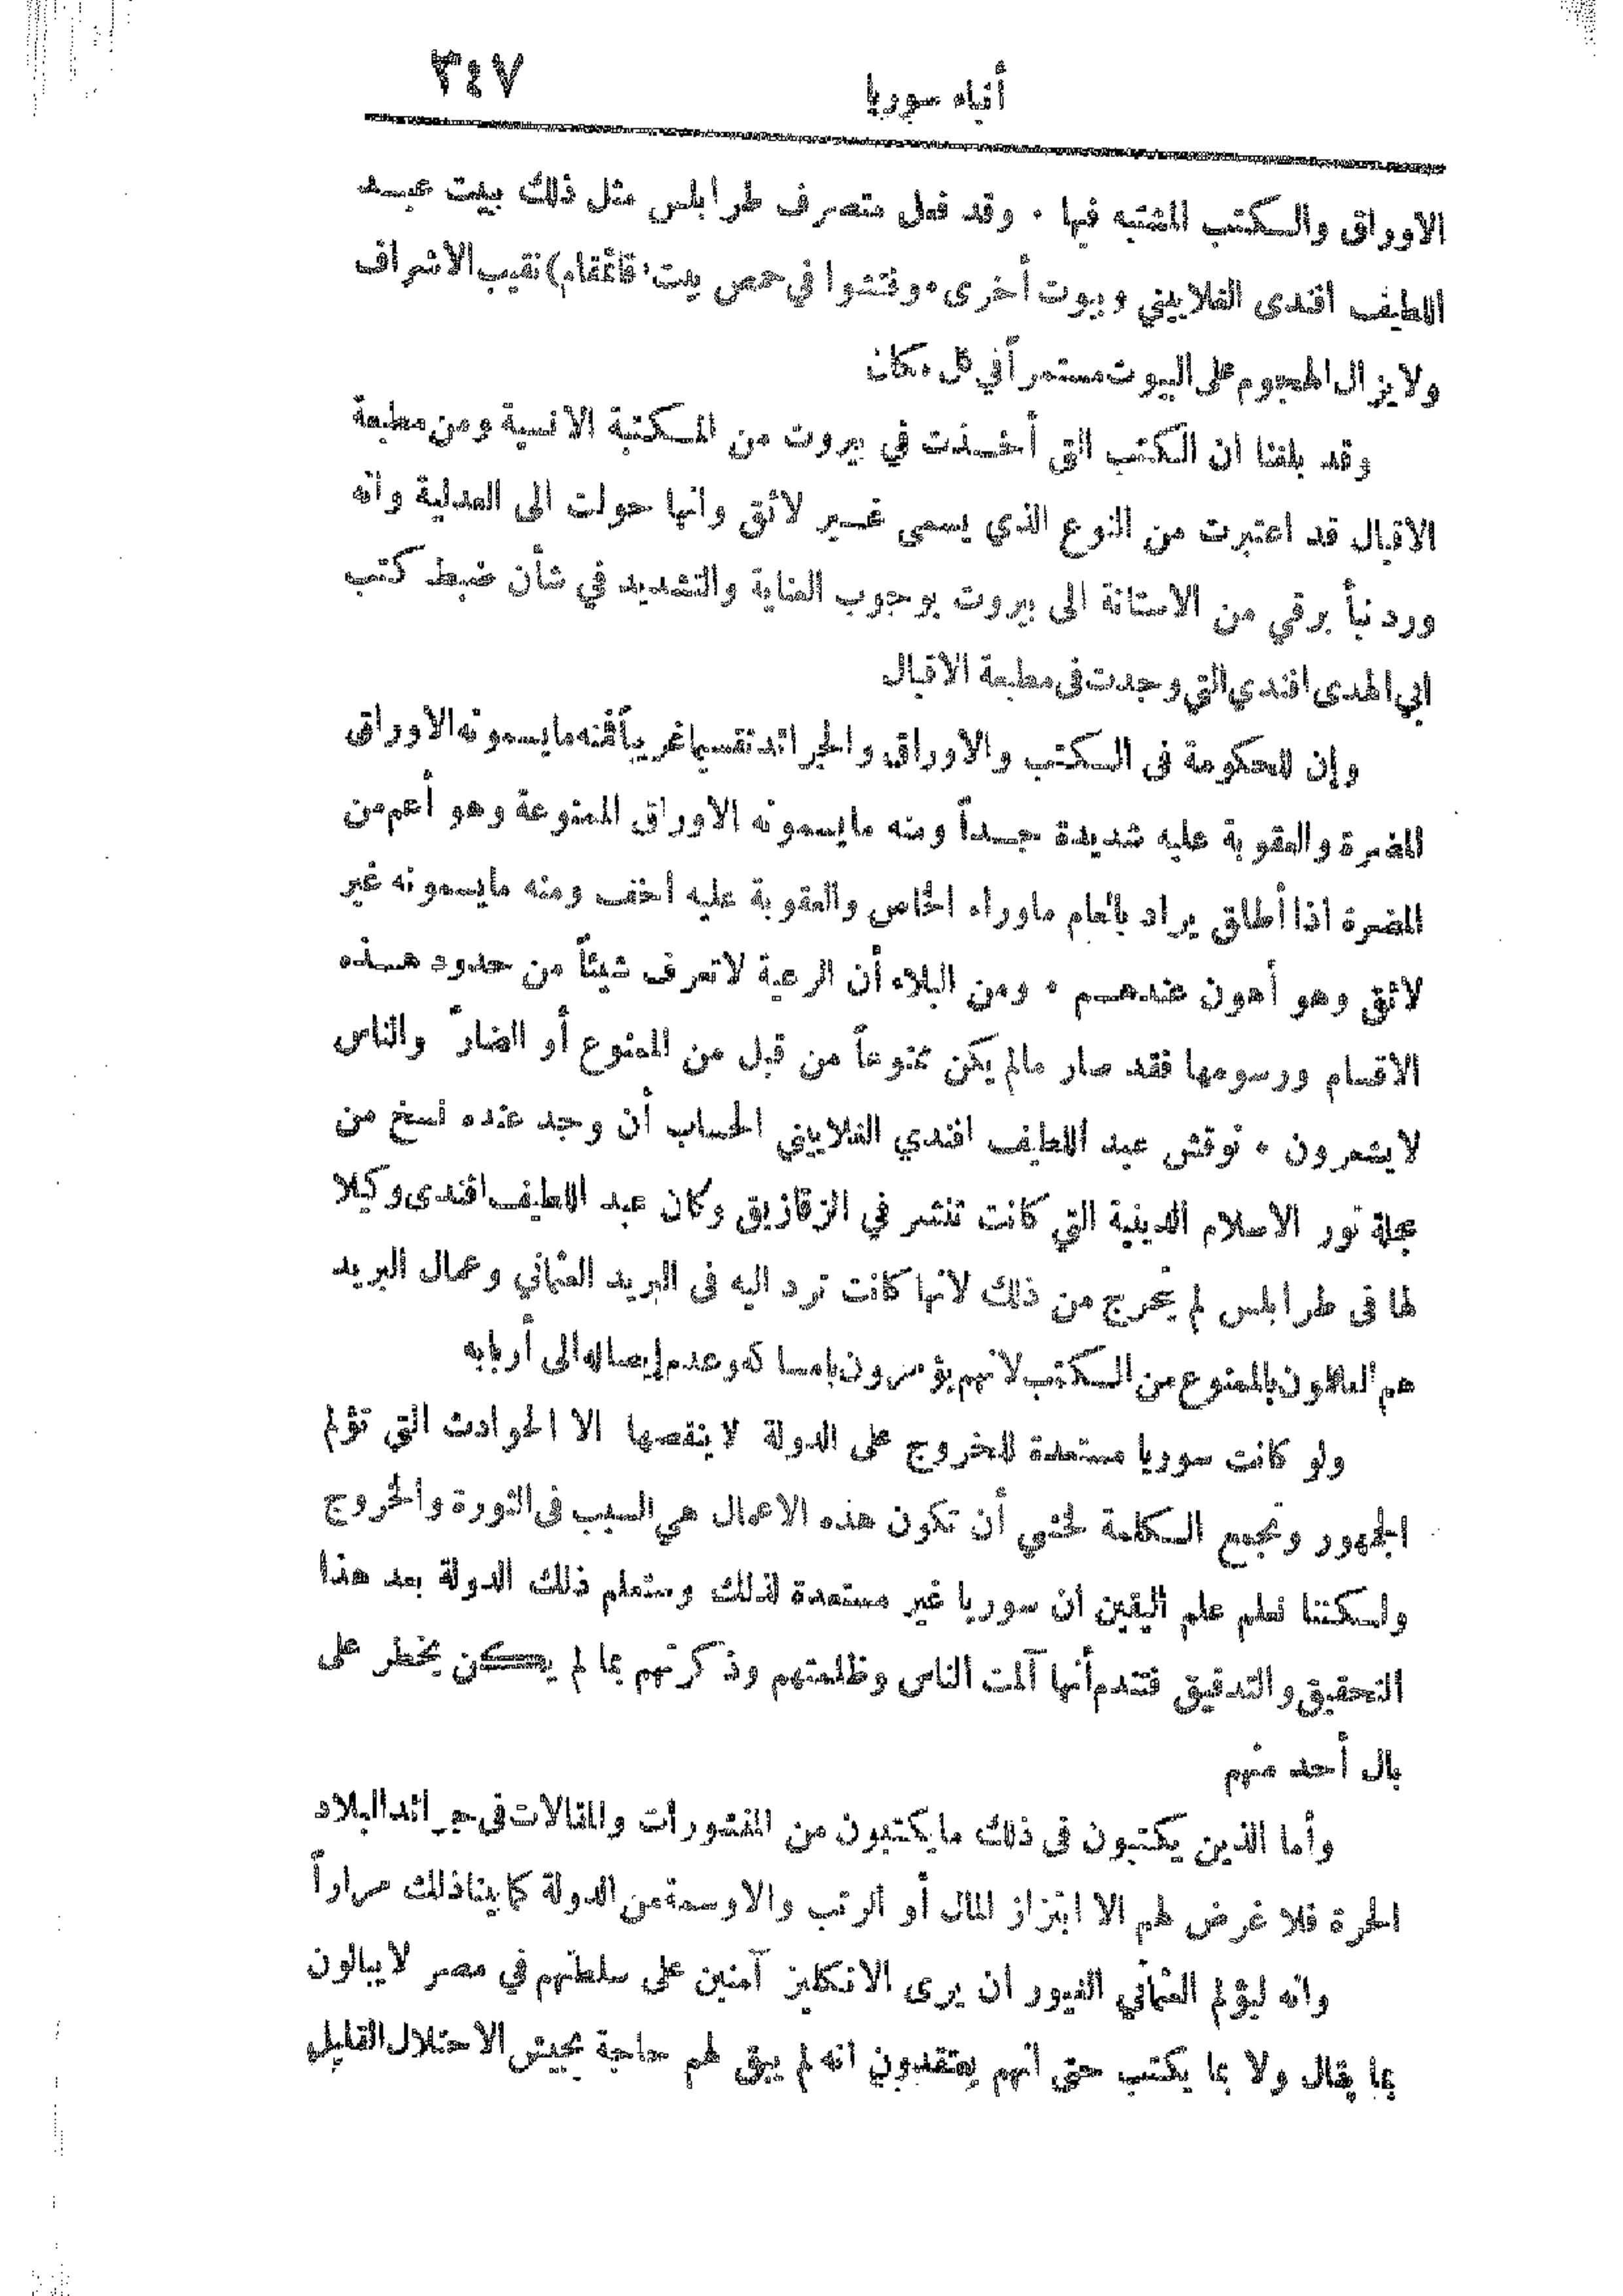 أنباء سوريا ٣٤٧
الاوراق والكتب المشتبه فيها . وقد فعل متصرف طرابلس مثل ذلك ببيت عبد
اللطيف افندى الغلاييني وبيوت أخرى . وفتشوا في حمص بيت (قائمقام) نقيب الاشراف
ولا يزال الهجوم على البيوت مستمراً في كل مكان
وقد بلغنا ان الكتب التي أخذت في بيروت من المكتبة الانسية ومن مطبعة
الاقبال قد اعتبرت من النوع الذي يسمى غير لائق وانها حولت الى العدلية وانه
ورد نبأ برقي من الاستانة الى بيروت بوجوب العناية والتشديد في شأن ضبط كتب
ابي الهدى افندي التي وجدت في مطبعة الاقبال
وإن للحكومة فى الكتب والاوراق والجرائد تقسيما غريباً فمنه ما يسمونه الاوراق
المضرة والعقوبة عليه شديدة جداً ومنه ما يسمونه الاوراق الممنوعة وهو أعم من
المضرة اذا أطلق يراد بالعام ماوراء الخاص والعقوبة عليه اخف ومنه مايسمونه غير
لائق وهو أهون عندهم . ومن البلاء أن الرعية لا تعرف شيئاً من حدود هذه
الاقسام ورسومها فقد صار مالم يكن ممنوعاً من قبل من الممنوع أو الضارّ والناس
لا يشعرون . نوقش عبد اللطيف افندي الغلاييني الحساب أن وجد عنده نسخ من
مجلة نور الاسلام الدينية التي كانت تنشر في الزقازيق وكان عبد اللطيف افندى وكيلا
لها فى طرابلس لم يخرج من ذلك لانها كانت ترد اليه فى البريد العثماني وعمال البريد
هم العالمون بالممنوع من الكتب لانهم يؤمرون بامساكه وعدم إيصاله الى أربابه
ولو كانت سوريا مستعدة للخروج على الدولة لا ينقصها الا الحوادث التي تؤلم
الجمهور وتجمع الكلمة لخشي أن تكون هذه الاعمال هي السبب فى الثورة والخروج
ولكننا نعلم علم اليقين ان سوريا غير مستعدة لذلك وستعلم ذلك الدولة بعد هذا
التحقيق والتدقيق فتندم أنها آلمت الناس وظلمتهم وذكرتهم بما لم يكن يخطر على
بال أحد منهم
وأما الذين يكتبون فى ذلك ما يكتبون من المنشورات والمقالات فى جرائد البلاد
الحرة فلا غرض لهم الا ابتزاز المال أو الرتب والاوسمة من الدولة كما بينا ذلك مراراً
وانه ليؤلم العثماني الغيور ان يرى الانكليز آمنين على سلطتهم في مصر لا يبالون
بما يقال ولا بما يكتب حتى انهم يعتقدون انه لم يبق لهم حاجة بجيش الاحتلال القليل